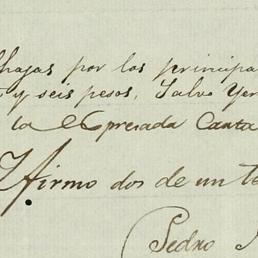 por los principa
y seis pesos, Salvo Yer
la Expresada Canta
Y firmo dos de un te
Pedro